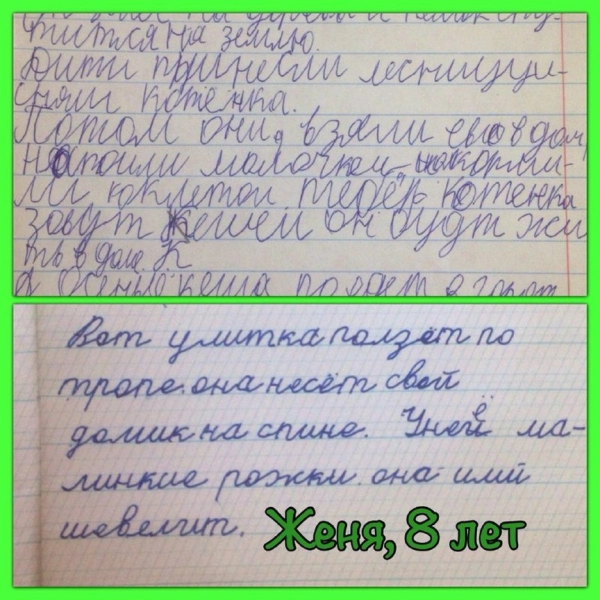 на
тится на землю.
Дити принесли лесницу и-
сняли котенка.
Потом они взяли ево в дом
напоили молочком, накорми-
ли коклетой теперь котенка
зовут Кешей он будт жи
ть в доме. К
Кеша
Вот улитка ползёт по
тропе. она несёт свой
домик на спине. Уней ма-
линкие рожки. она ими
шевелит.
Женя, 8 лет